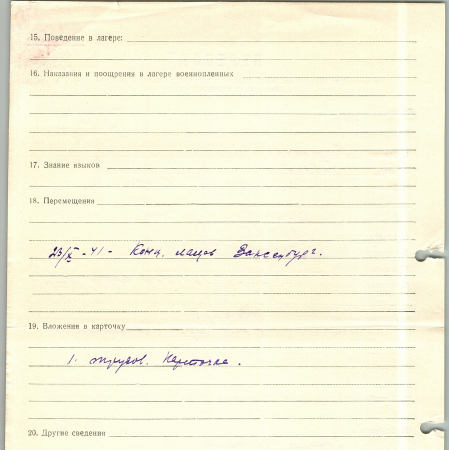 15. Поведение в лагере:
16. Наказания и поощрения в лагере военнопленных
17. Знание языков
18. Перемещения
23/X - 41 - Конц. лагерь
19. Вложения в карточку
1. трудов. карточка.
20. Другие сведения